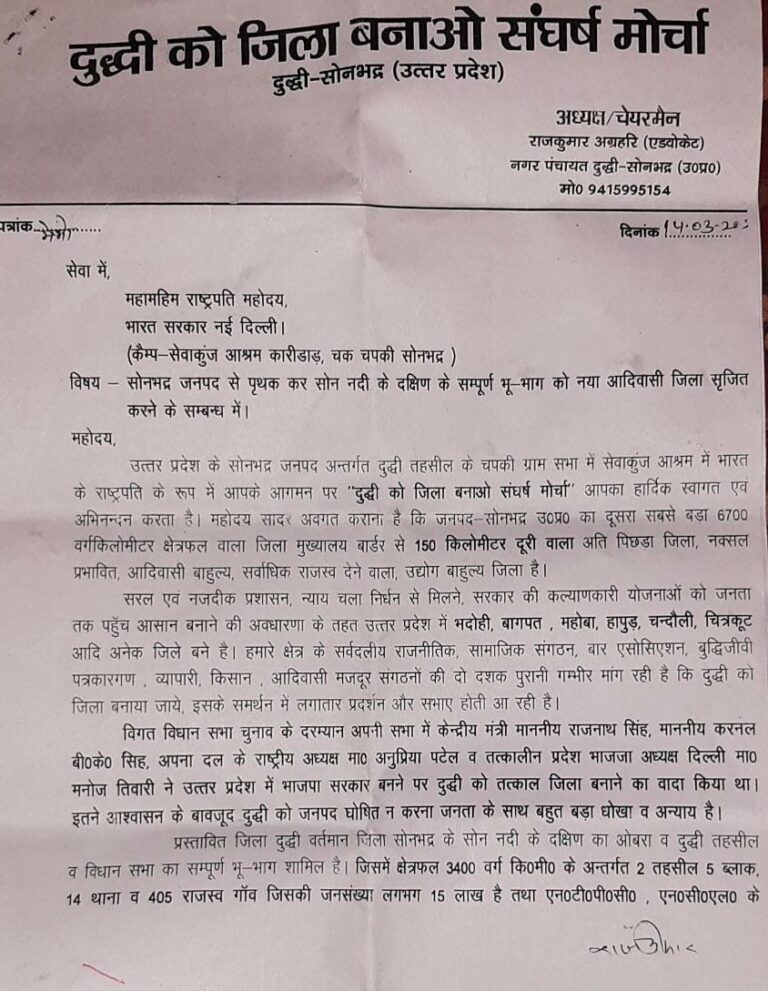 दुद्धी को जिला बनाओ संघर्ष मोर्चा
दुद्धी-सोनभद्र (उत्तर प्रदेश)
अध्यक्ष/चेयरमैन
राजकुमार अग्रहरि (एडवोकेट)
नगर पंचायत दुद्धी-सोनभद्र (उ0प्र0)
मो0 9415995154
पत्रांक
दिनांक 14.03.20
सेवा में,
महामहिम राष्ट्रपति महोदय,
भारत सरकार नई दिल्ली।
(कैम्प-सेवाकुंज आश्रम कारीडाड़, चक चपकी सोनभद्र )
विषय – सोनभद्र जनपद से पृथक कर सोन नदी के दक्षिण के सम्पूर्ण भू-भाग को नया आदिवासी जिला सृजित
करने के सम्बन्ध में।
महोदय,
उत्तर प्रदेश के सोनभद्र जनपद अन्तर्गत दुद्धी तहसील के चपकी ग्राम सभा में सेवाकुंज आश्रम में भारत
के राष्ट्रपति के रूप में आपके आगमन पर "दुद्धी को जिला बनाओ संघर्ष मोर्चा" आपका हार्दिक स्वागत एवं
अभिनन्दन करता है। महोदय सादर अवगत कराना है कि जनपद-सोनभद्र उ0प्र0 का दूसरा सबसे बड़ा 6700
वर्गकिलोमीटर क्षेत्रफल वाला जिला मुख्यालय बार्डर से 150 किलोमीटर दूरी वाला अति पिछडा जिला, नक्सल
प्रभावित, आदिवासी बाहुल्य, सर्वाधिक राजस्व देने वाला, उद्योग बाहुल्य जिला है।
सरल एवं नजदीक प्रशासन, न्याय चला निर्धन से मिलने, सरकार की कल्याणकारी योजनाओं को जनता
तक पहुँच आसान बनाने की अवधारणा के तहत उत्तर प्रदेश में भदोही, बागपत , महोबा, हापुड़, चन्दौली, चित्रकूट
आदि अनेक जिले बने है। हमारे क्षेत्र के सर्वदलीय राजनीतिक, सामाजिक संगठन, बार एसोसिएशन, बुद्धिजीवी
पत्रकारगण , व्यापारी, किसान , आदिवासी मजदूर संगठनों की दो दशक पुरानी गम्भीर मांग रही है कि दुद्धी को
जिला बनाया जाये, इसके समर्थन में लगातार प्रदर्शन और सभाए होती आ रही है।
विगत विधान सभा चुनाव के दरम्यान अपनी सभा में केन्द्रीय मंत्री माननीय राजनाथ सिंह, माननीय करनल
बी0के0 सिह, अपना दल के राष्ट्रीय अध्यक्ष मा0 अनुप्रिया पटेल व तत्कालीन प्रदेश भाजजा अध्यक्ष दिल्ली मा0
मनोज तिवारी ने उत्तर प्रदेश में भाजपा सरकार बनने पर दुद्धी को तत्काल जिला बनाने का वादा किया था।
इतने आश्वासन के बावजूद दुद्धी को जनपद घोषित न करना जनता के साथ बहुत बड़ा धोखा व अन्याय है।
प्रस्तावित जिला दुद्धी वर्तमान जिला सोनभद्र के सोन नदी के दक्षिण का ओबरा व दुद्धी तहसील
व विधान सभा का सम्पूर्ण भू-भाग शामिल है। जिसमें क्षेत्रफल 3400 वर्ग कि0मी0 के अन्तर्गत 2 तहसील 5 ब्लाक,
14 थाना व 405 राजस्व गॉव जिसकी जनसंख्या लगभग 15 लाख है तथा एन0टी0पी0सी0 , एन0सी0एल0 के